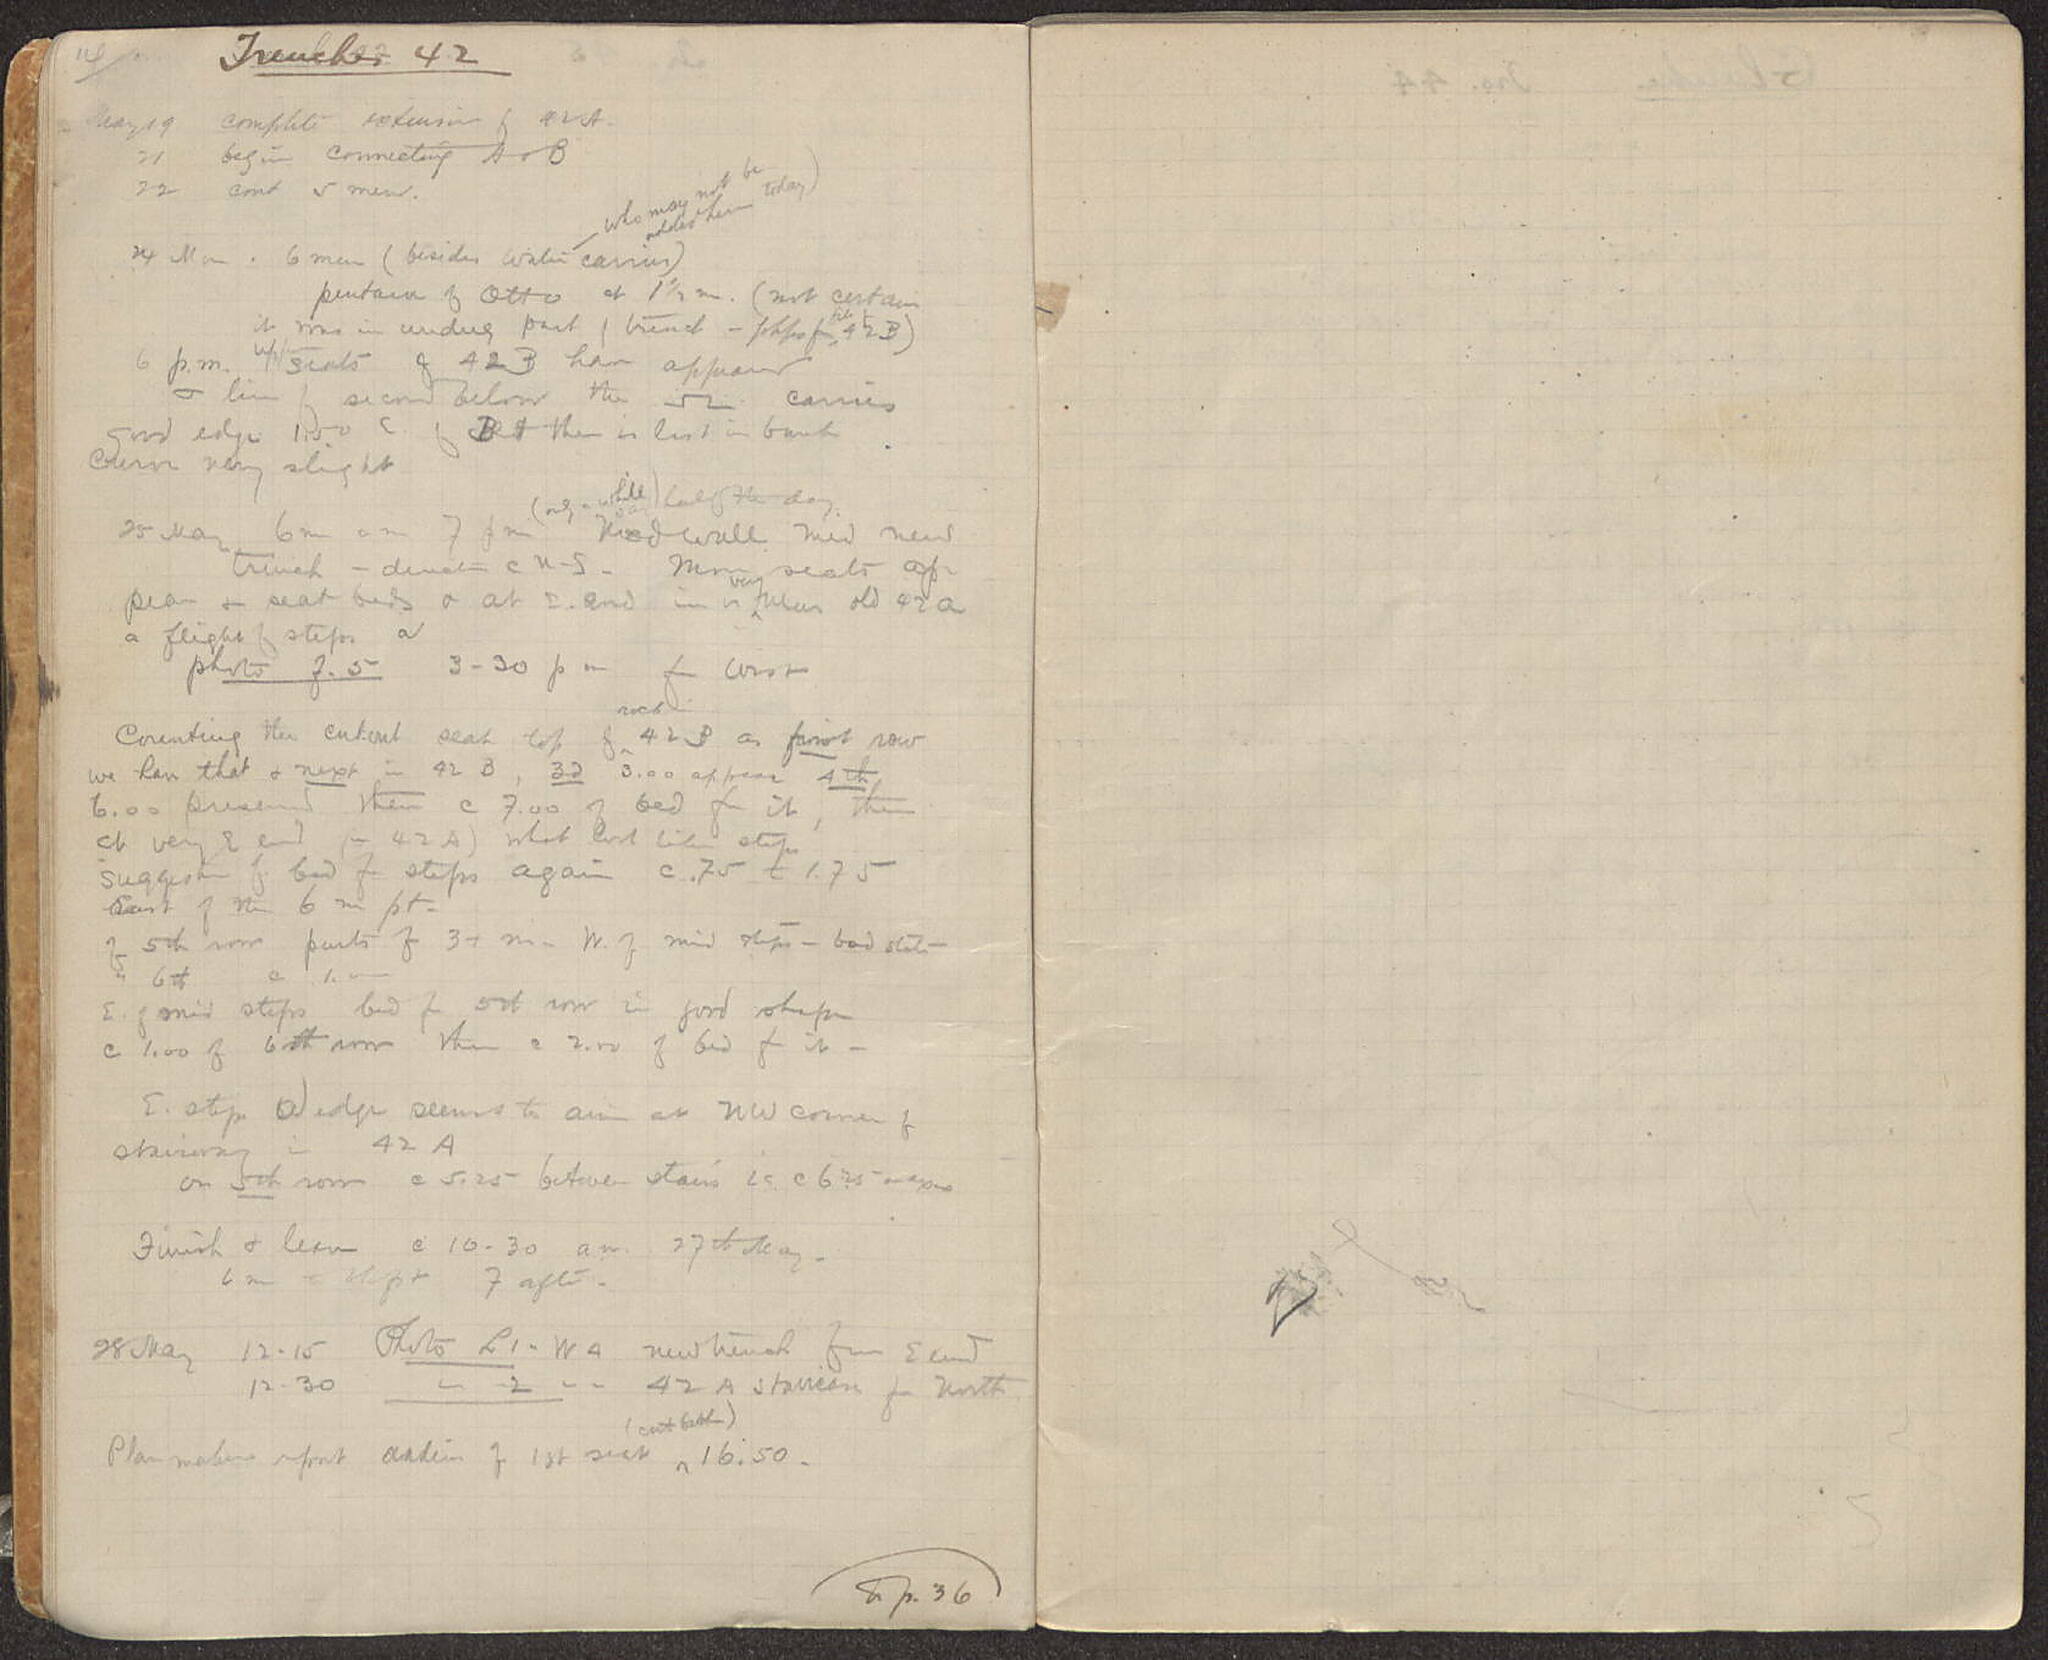 14
Trenches 42
May 19 complete extension of 42A.
21 begin connecting A & B
22 cont 5 men.
who may not be
today)
24 Mon. 6 men (besides water carrier)
of Otto at 1½ m. (not certain
it was in undug part of trench - 42B)
6 p.m. seats of 42B have appeared
& line of second below the carries
good edge 1.50 c. of B & then is lost in bank
Curve very slight
(only a while) half the day.
25 May 6 m a m 7 p m wall mid new
trench - c N-S - More seats ap
pear & seat beds & at E. end in very old 42A
a flight of steps
photo 7.5 3-30 p m fr West
rock
Counting the cut out seat top of 42B as first row
we have that & next in 42B, 3d 3.00 appear 4th
6.00 preserved then c 7.00 of bed for it, then
at very E end (in 42A) what look like steps
Suggestion of bed for steps again c .75 to 1.75
East of the 6 m pt-
of 5th row parts of 3+ m - W. of mid steps - bad state -
" 6th c 1.
E. of mid steps bed for 5th row in good shape
c 1.00 of 6th row then c 2.00 of bed for it -
E. step W edge seems to aim at NW corner of
stairway in 42 A
on 5th row c 5.25 between stairs is c 6.25
Finish & leave c 10-30 am. 27th May -
6 m 7 after -
28 May 12-15 Photo L1 - new trench from E end
12-30 " 2 " 42 A staircase fr North
(cut bed)
Plan makers report radius of 1st seat 16.50 -
p. 36